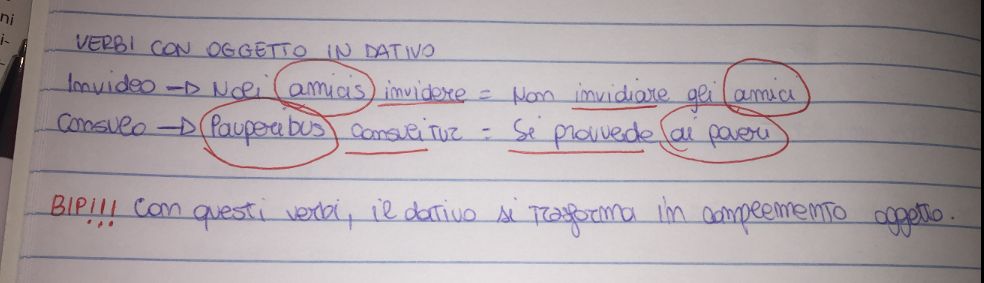 ni
i-
VERBI CON OGGETTO IN DATIVO
Invideo → Noli amicis invidere = Non invidiare gli amici
Consulo → Pauperibus consulitur = Si provvede ai poveri
BIP!!! Con questi verbi, il dativo si trasforma in complemento oggetto.